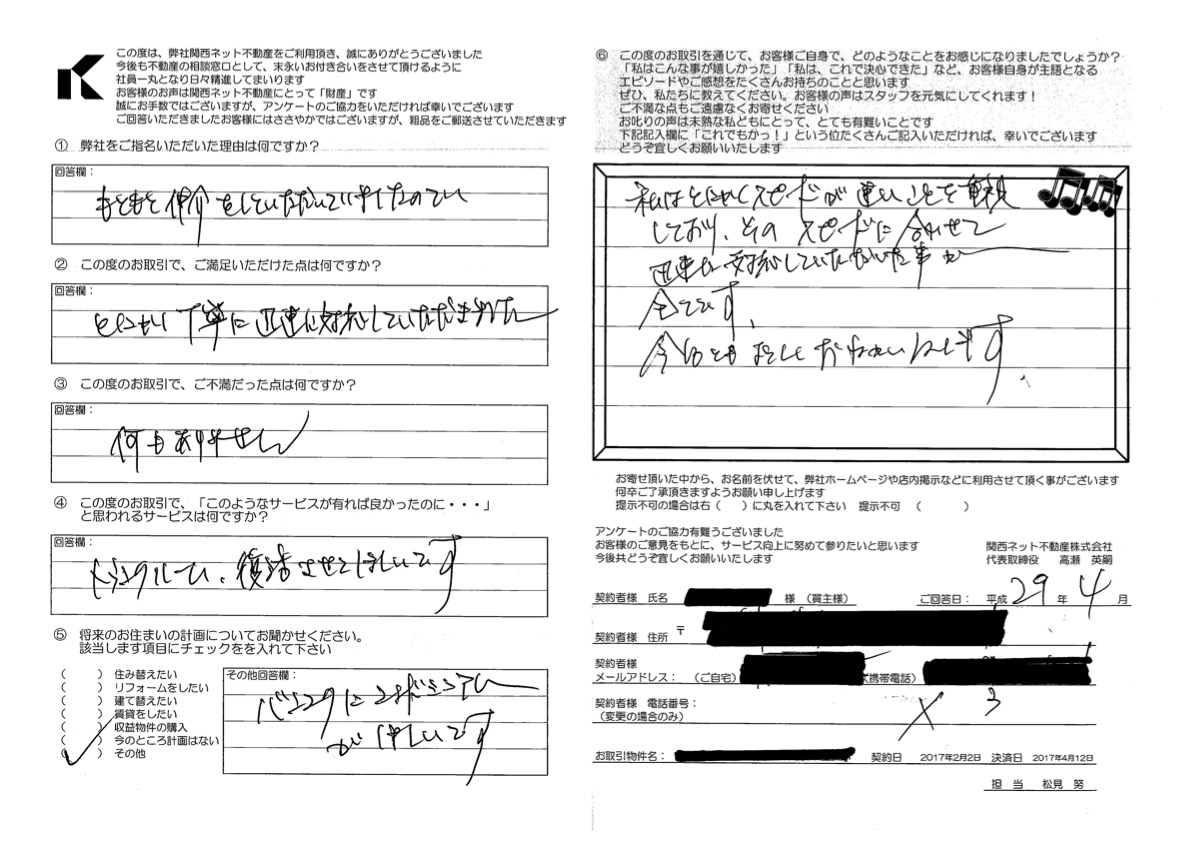 この度は、弊社関西ネット不動産をご利用頂き、誠にありがとうございました
今後も不動産の相談窓口として、末永いお付き合いをさせて頂けるように
社員一丸となり日々精進してまいります
お客様のお声は関西ネット不動産にとって「財産」です
誠にお手数ではございますが、アンケートのご協力をいただければ幸いでございます
ご回答いただきましたお客様にはささやかではございますが、粗品をご郵送させていただきます
① 弊社をご指名いただいた理由は何ですか？
回答欄：
もともと仲介をしていただいていましたので
② この度のお取引で、ご満足いただけた点は何ですか？
回答欄：
とにかく丁寧に迅速に対応していただきました
③ この度のお取引で、ご不満だった点は何ですか？
回答欄：
何もありません
④ この度のお取引で、「このようなサービスが有れば良かったのに・・・」
と思われるサービスは何ですか？
回答欄：
、復活させてほしいです
⑤ 将来のお住まいの計画についてお聞かせください。
該当します項目にチェックをを入れて下さい
（　　）住み替えたい
（　　）リフォームをしたい
（　　）建て替えたい
（　　）賃貸をしたい
（　　）収益物件の購入
（　　）今のところ計画はない
（✓）その他
その他回答欄：
が欲しいです
⑥ この度のお取引を通じて、お客様ご自身で、どのようなことをお感じになりましたでしょうか？
「私はこんな事が嬉しかった」「私は、これで決心できた」など、お客様自身が主語となる
エピソードやご感想をたくさんお持ちのことと思います
ぜひ、私たちに教えてください。お客様の声はスタッフを元気にしてくれます！
ご不満な点もご遠慮なくお寄せください
お叱りの声は未熟な私どもにとって、とても有難いことです
下記記入欄に「これでもかっ！」という位たくさんご記入いただければ、幸いでございます
どうぞ宜しくお願いいたします
私はとにかくスピードが速いことを重視
しており、そのスピードに合わせて
迅速な対応していただいた事が
全てです、
今後ともよろしくおねがいします
お寄せ頂いた中から、お名前を伏せて、弊社ホームページや店内掲示などに利用させて頂く事がございます
何卒ご了承頂きますようお願い申し上げます
提示不可の場合は右（　　）に丸を入れて下さい　提示不可　（　　　　）
アンケートのご協力有難うございました
お客様のご意見をもとに、サービス向上に努めて参りたいと思います
今後共どうぞ宜しくお願いいたします
関西ネット不動産株式会社
代表取締役　高瀬　英嗣
契約者様 氏名　様（買主様）　ご回答日：平成 29 年 4 月
契約者様 住所　〒
契約者様
メールアドレス：　（ご自宅）　（携帯電話）
契約者様 電話番号：
（変更の場合のみ）
お取引物件名：　契約日　2017年2月2日　決済日　2017年4月12日
担　当　松見　努